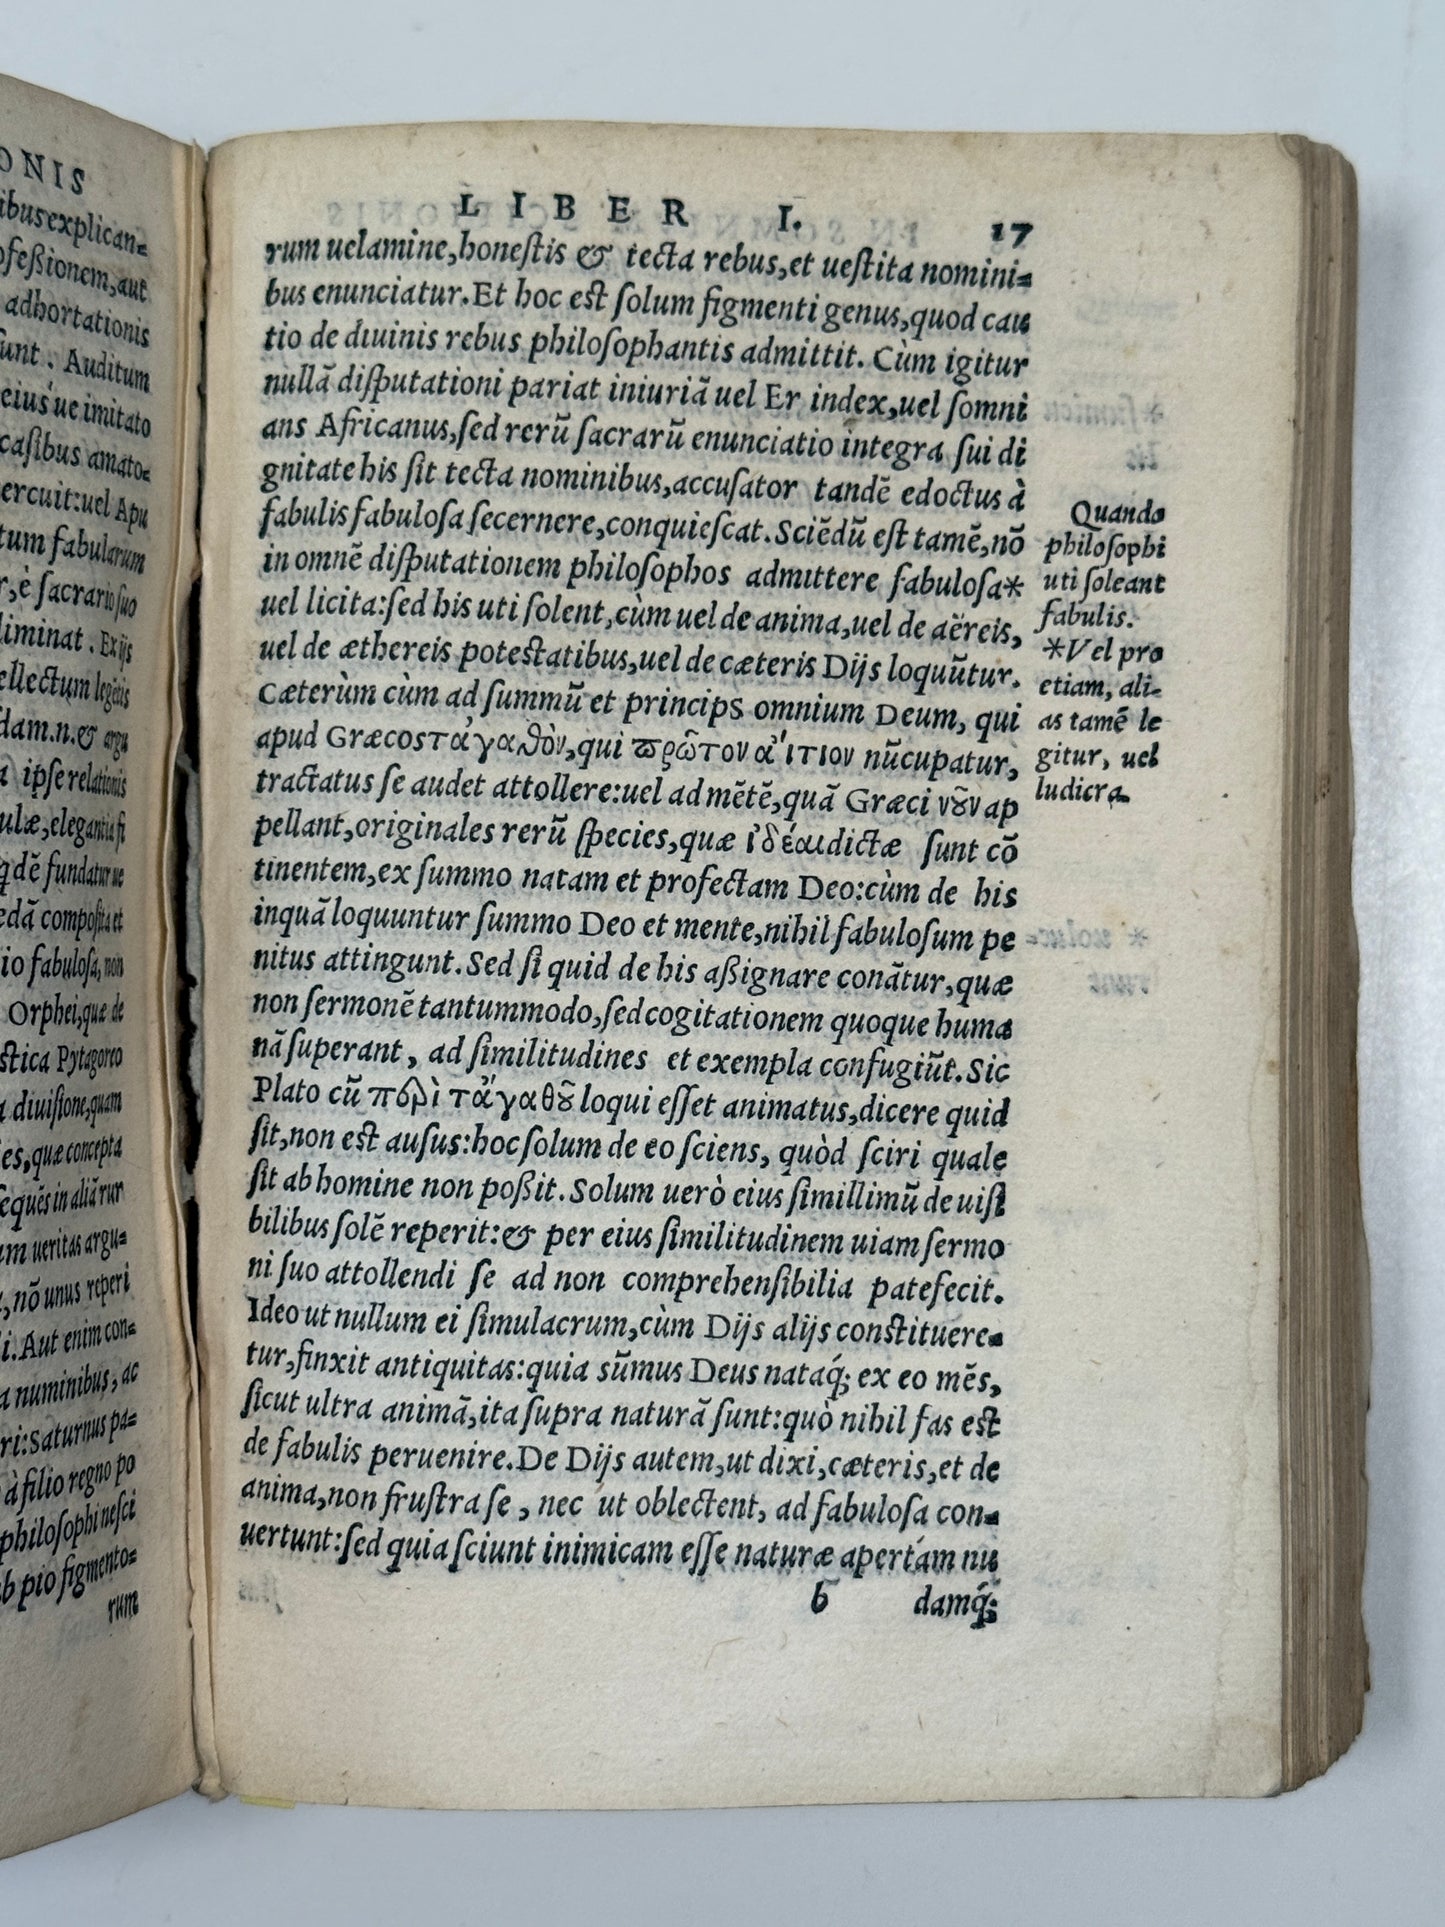 ONIS
ibus explican=
ofeßionem, aut
adhortationis
unt. Auditum
eius ue imitato
casibus amato=
ercuit: uel Apu
tum fabularum
r, è sacrario suo
liminat. Ex ijs
ellectum legētis
dam.n.& argu
a ipse relationis
ulæ, elegantia fi
qdē fundatur ue
edā composita et
io fabulosa, non
Orphei, quæ de
stica Pytagoreo
a diuisione, quam
es, quæ concepta
sequēs in aliā rur
um ueritas argu=
, nō unus reperi
i. Aut enim con=
a numinibus, ac
ri: Saturnus pa=
à filio regno po
philosophi nesci
b pio figmento=
rum
LIBER I. 17
rum uelamine, honestis & tecta rebus, et uestita nomini=
bus enunciatur. Et hoc est solum figmenti genus, quod cau
tio de diuinis rebus philosophantis admittit. Cùm igitur
nullā disputationi pariat iniuriā uel Er index, uel somni
ans Africanus, sed rerū sacrarū enunciatio integra sui di
gnitate his sit tecta nominibus, accusator tandē edoctus à
fabulis fabulosa secernere, conquiescat. Sciēdū est tamē, nō
in omnē disputationem philosophos admittere fabulosa*
uel licita: sed his uti solent, cùm uel de anima, uel de aëreis,
uel de æthereis potestatibus, uel de cæteris Dijs loquūtur.
Cæterùm cùm ad summū et princips omnium Deum, qui
apud Græcos τἀγαθὸν, qui πρῶτον αἴτιον nūcupatur,
tractatus se audet attollere: uel ad mētē, quā Græci νοῦν ap
pellant, originales rerū species, quæ ἰδέαι dictæ sunt cō
tinentem, ex summo natam et profectam Deo: cùm de his
inquā loquuntur summo Deo et mente, nihil fabulosum pe
nitus attingunt. Sed si quid de his aßignare conātur, quæ
non sermonē tantummodo, sed cogitationem quoque huma
nā superant, ad similitudines et exempla confugiūt. Sic
Plato cū περὶ τἀγαθοῦ loqui esset animatus, dicere quid
sit, non est ausus: hoc solum de eo sciens, quòd sciri quale
sit ab homine non poßit. Solum uerò eius simillimū de uisi
bilibus solē reperit: & per eius similitudinem uiam sermo
ni suo attollendi se ad non comprehensibilia patefecit.
Ideo ut nullum ei simulacrum, cùm Dijs alijs constituere=
tur, finxit antiquitas: quia sūmus Deus nataq́; ex eo mēs,
sicut ultra animā, ita supra naturā sunt: quò nihil fas est
de fabulis peruenire. De Dijs autem, ut dixi, cæteris, et de
anima, non frustra se, nec ut oblectent, ad fabulosa con=
uertunt: sed quia sciunt inimicam esse naturæ apertam nu
b damq́;
Quando
philosophi
uti soleant
fabulis.
*Vel pro
etiam, ali=
as tamē le
gitur, uel
ludicra